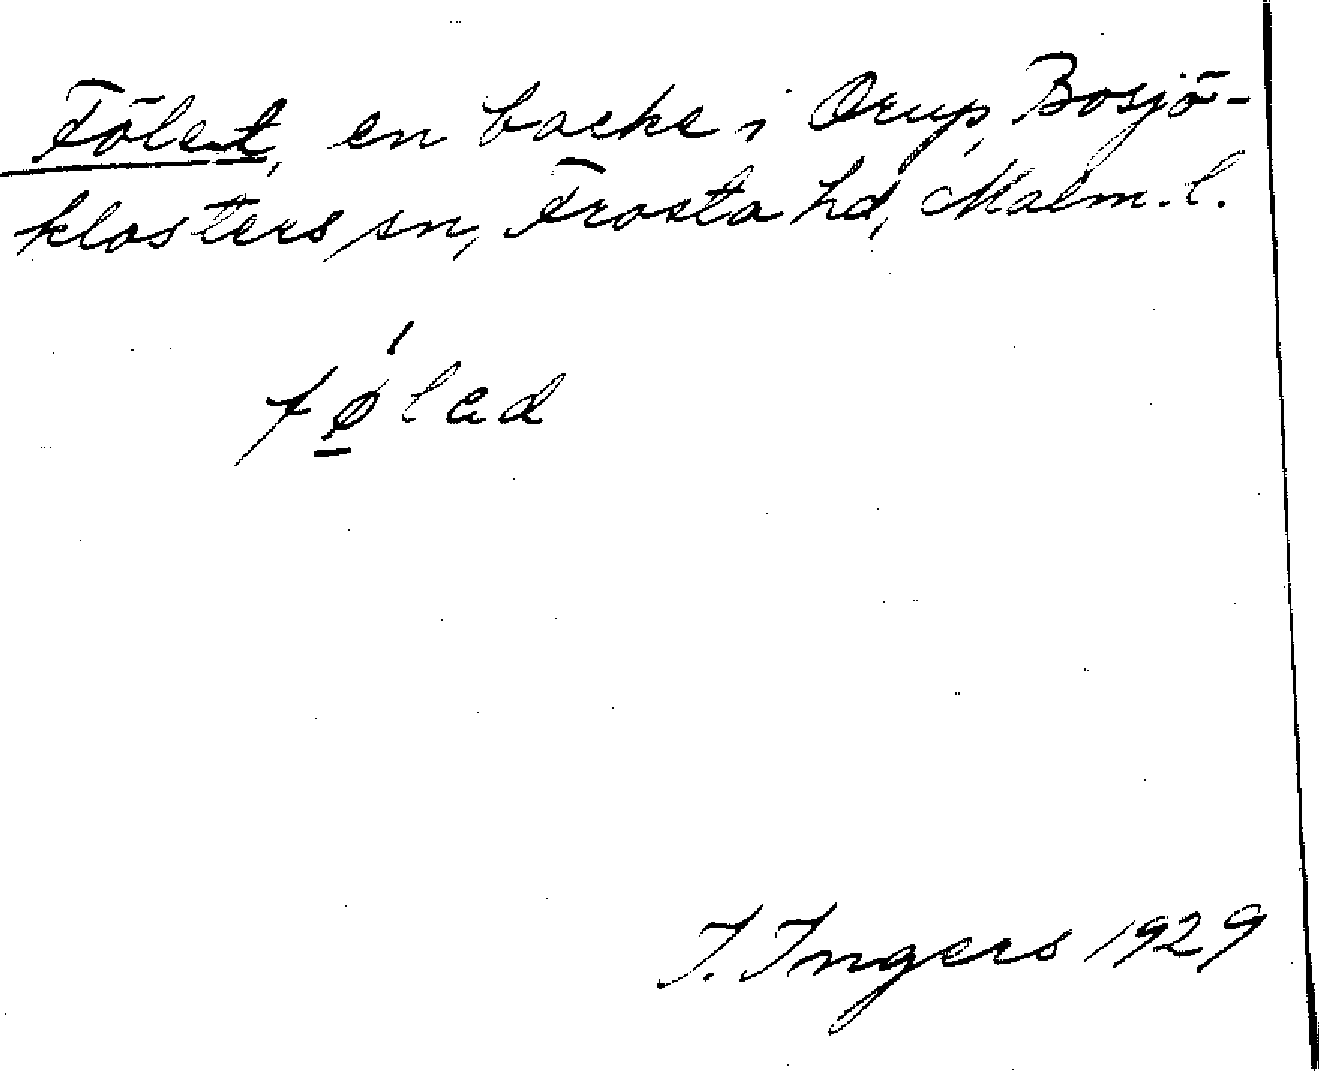 Fölet, en backe i Orup, Bosjö-
klosters sn, Frosta hd, Malm. l.
fǿ̱lad
I. Ingers 1929